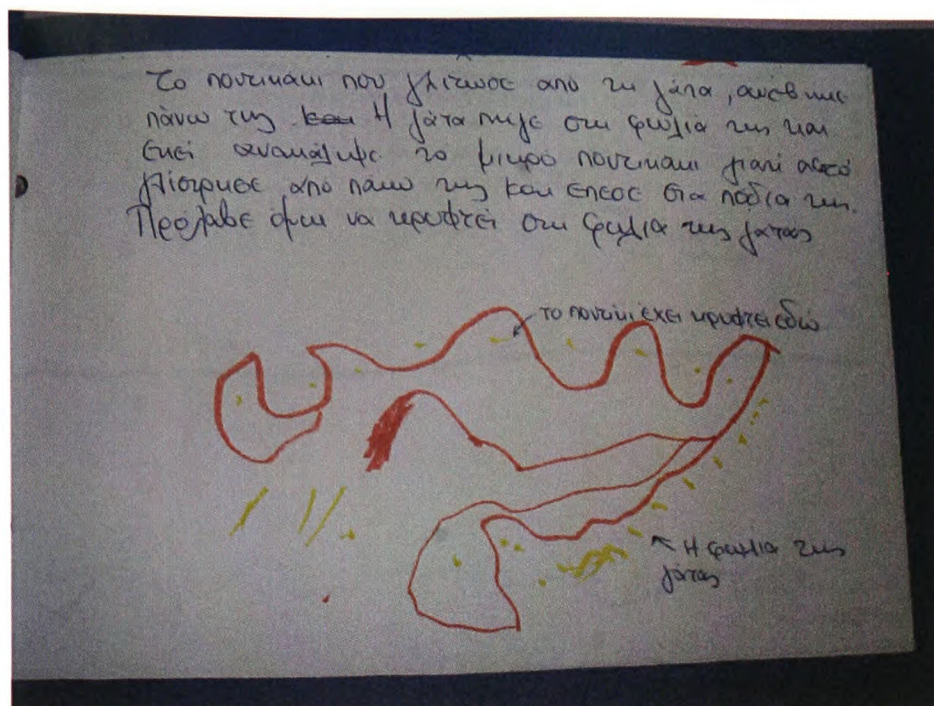 Το ποντικάκι που γλίτωσε από τη γάτα, ανέβηκε
πάνω της Η γάτα πήγε στη φωλιά της και
εκεί ανακάλυψε το μικρό ποντικάκι γιατί αυτό
γλίστρησε από πάνω της και έπεσε στα πόδια της.
Πρόλαβε όμως να κρυφτεί στη φωλιά της γάτας
το ποντίκι έχει κρυφτεί εδώ
Η φωλιά της
γάτας